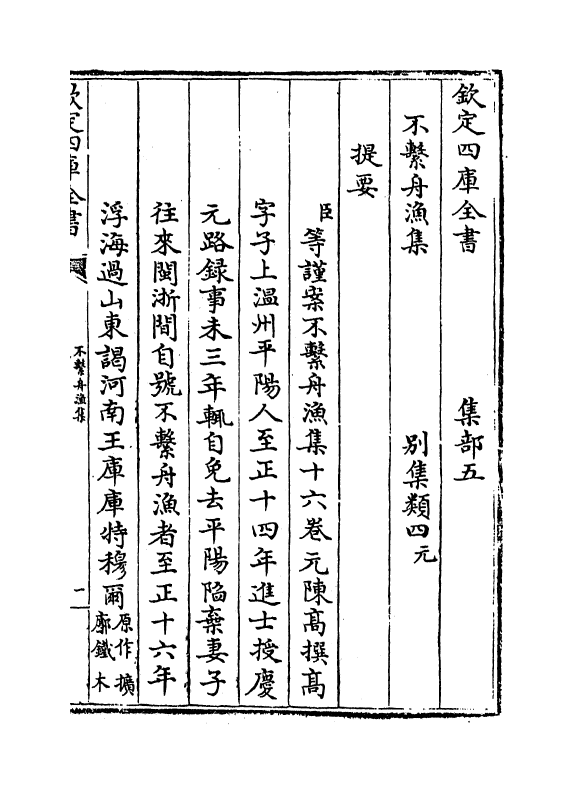 欽定四庫全書　　　集部五
不繫舟漁集　　　　別集類四元
提要
臣等謹案不繫舟漁集十六卷元陳髙撰髙
字子上溫州平陽人至正十四年進士授慶
元路録事未三年輒自免去平陽陷棄妻子
往來閩浙間自號不繫舟漁者至正十六年
浮海過山東謁河南王庫庫特穆爾原作擴廓鐵木
欽定四庫全書
不繫舟漁集